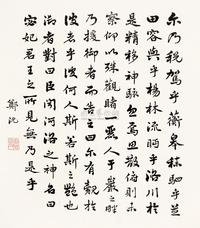 尔乃税驾乎蘅皋秣驷乎芝
田容与乎杨林流眄乎洛川于
是精移神骇忽焉思散俯则未
察仰以殊观睹一丽人于岩之畔
乃援御者而告之曰尔有觌于
彼者乎彼何人斯若斯之艳也
御者对曰臣闻河洛之神名曰
宓妃君王之所见无乃是乎
郑沅